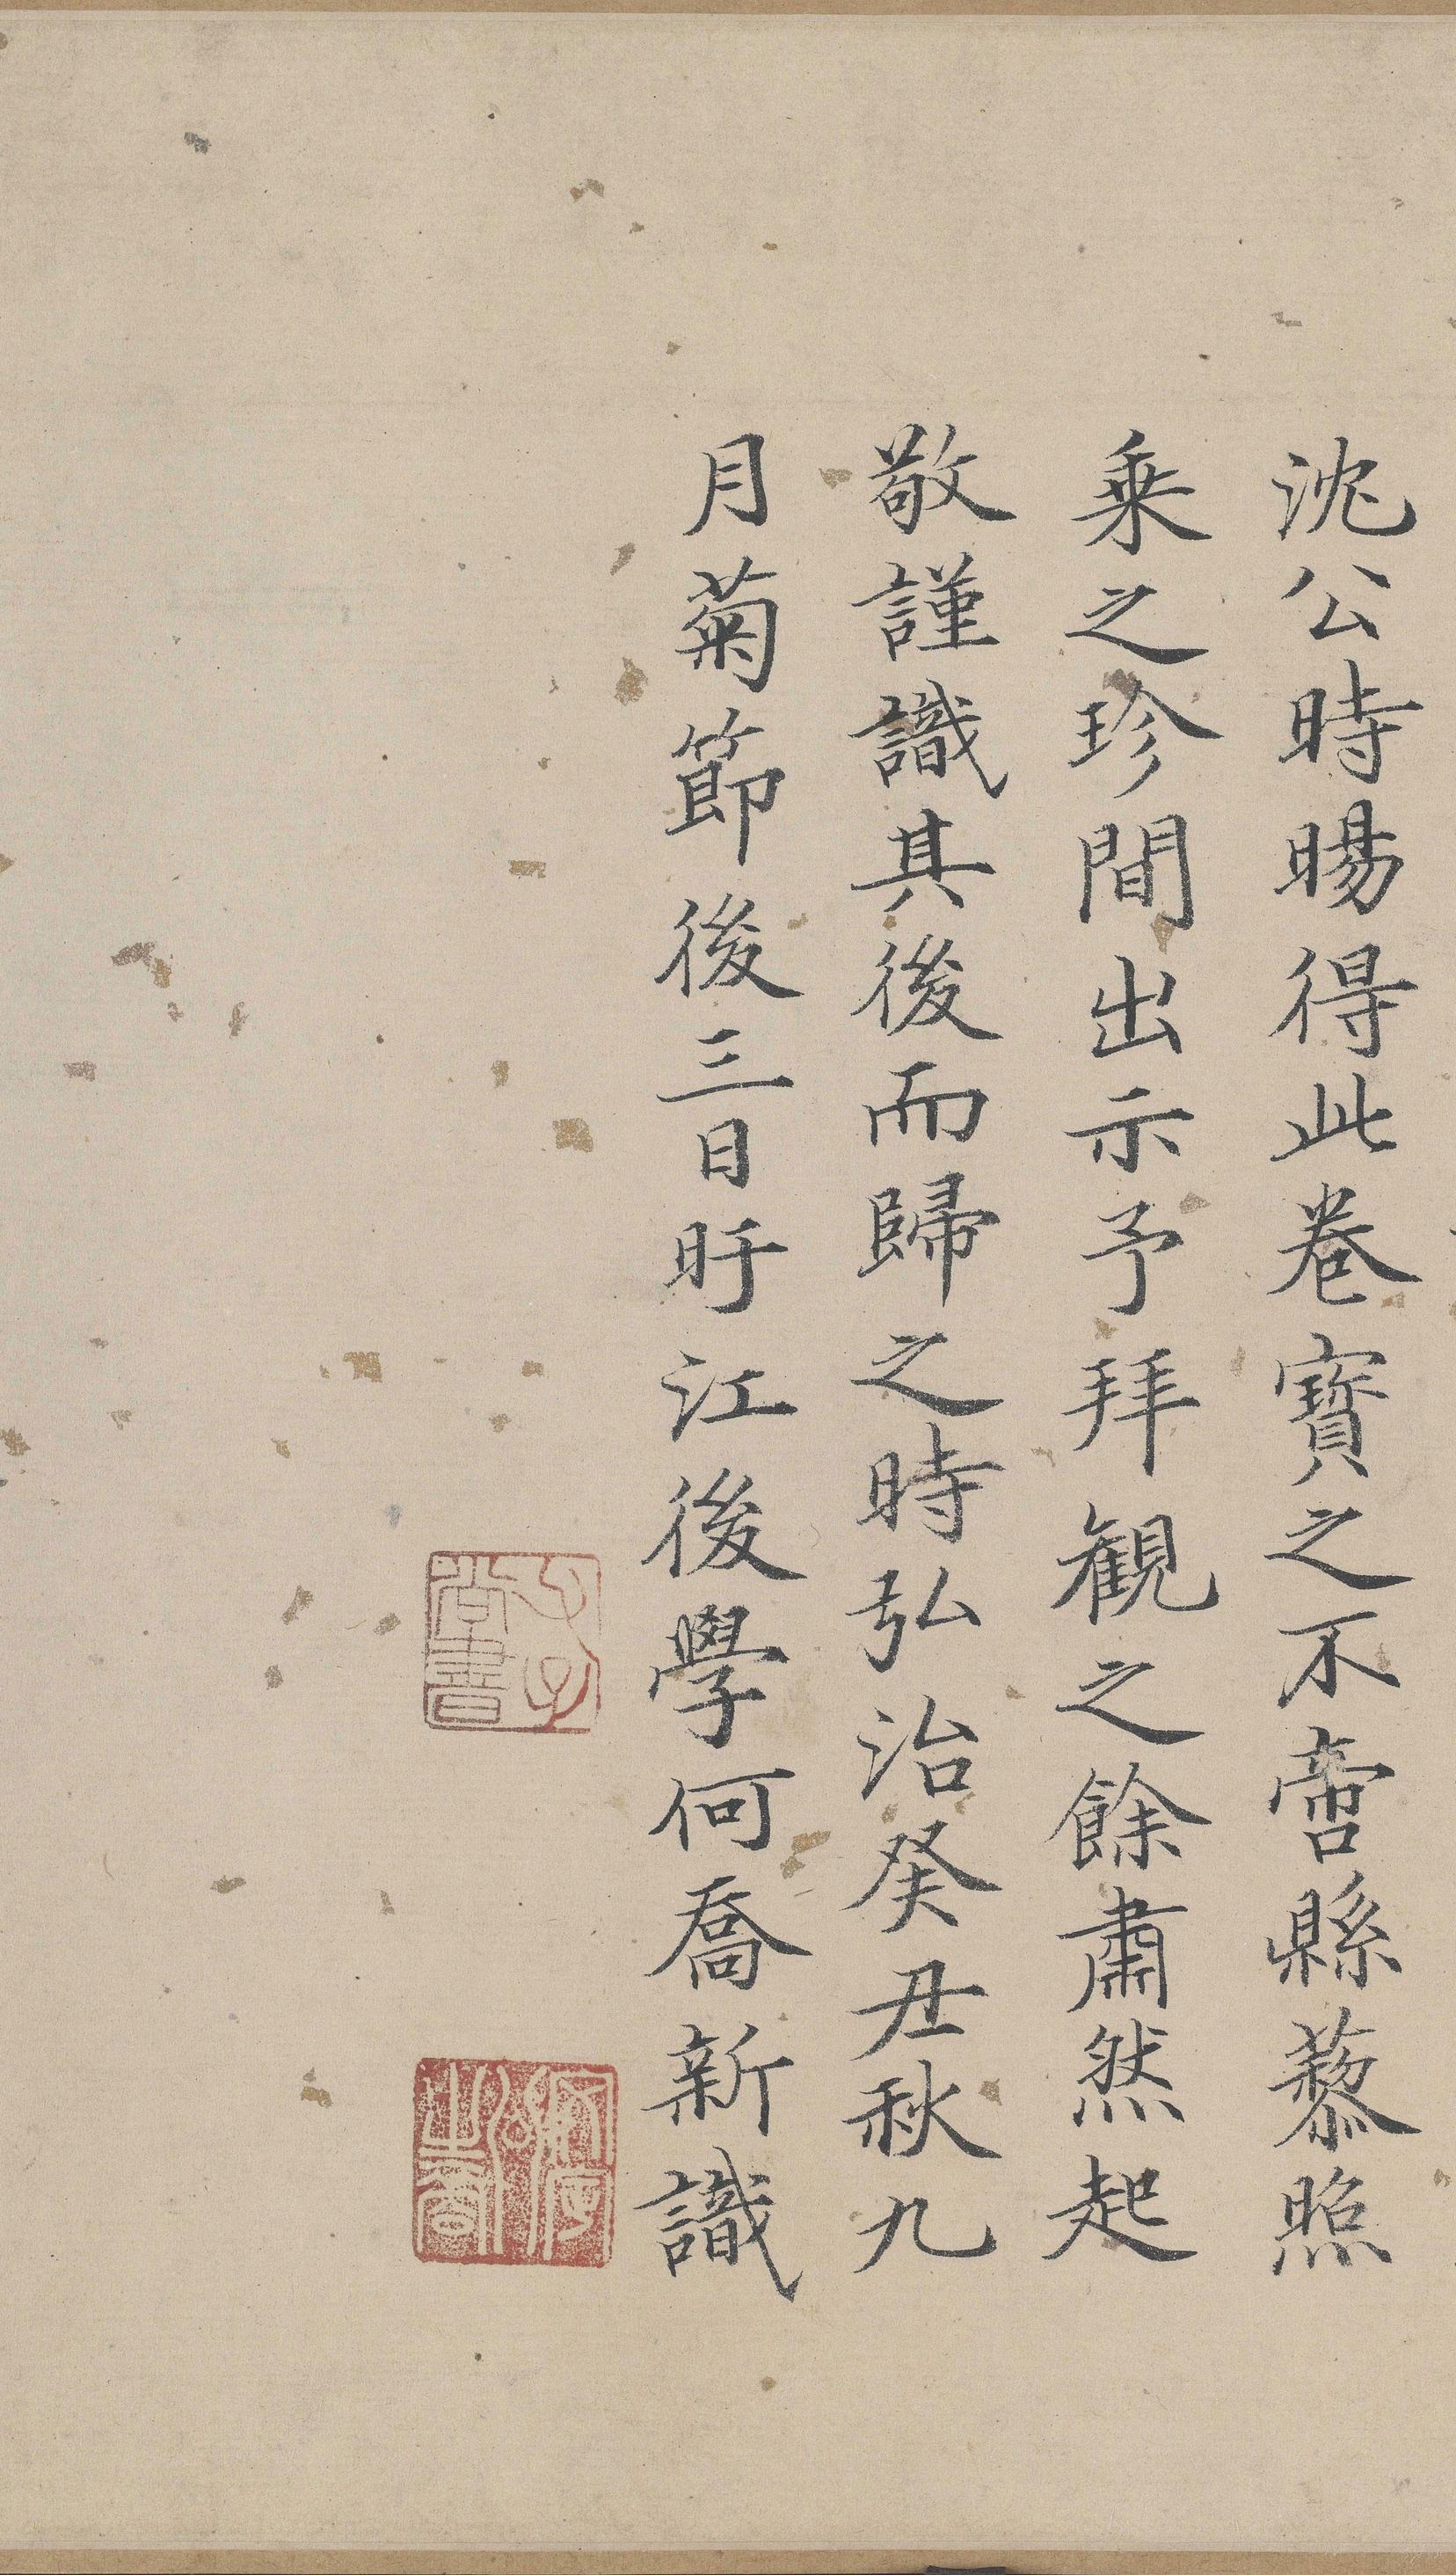 沈公時暘得此卷寳之不啻縣藜照
乗之珍間出示予拜觀之餘肅然起
敬謹識其後而歸之時弘治癸丑秋九
月菊節後三日盱江後學何喬新識